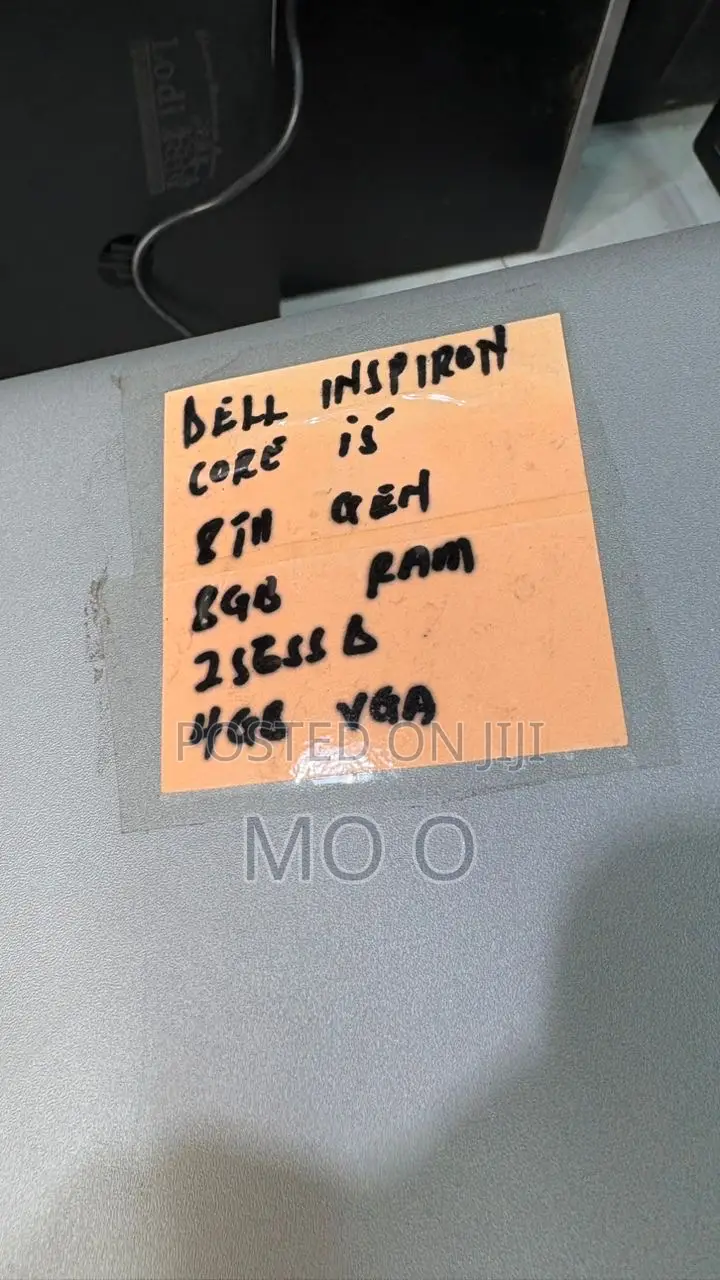 DELL INSPIRON
CORE i5
8TH GEN
8GB RAM
256SSD
4GB VGA
POSTED ON JIJI
MO O
hp